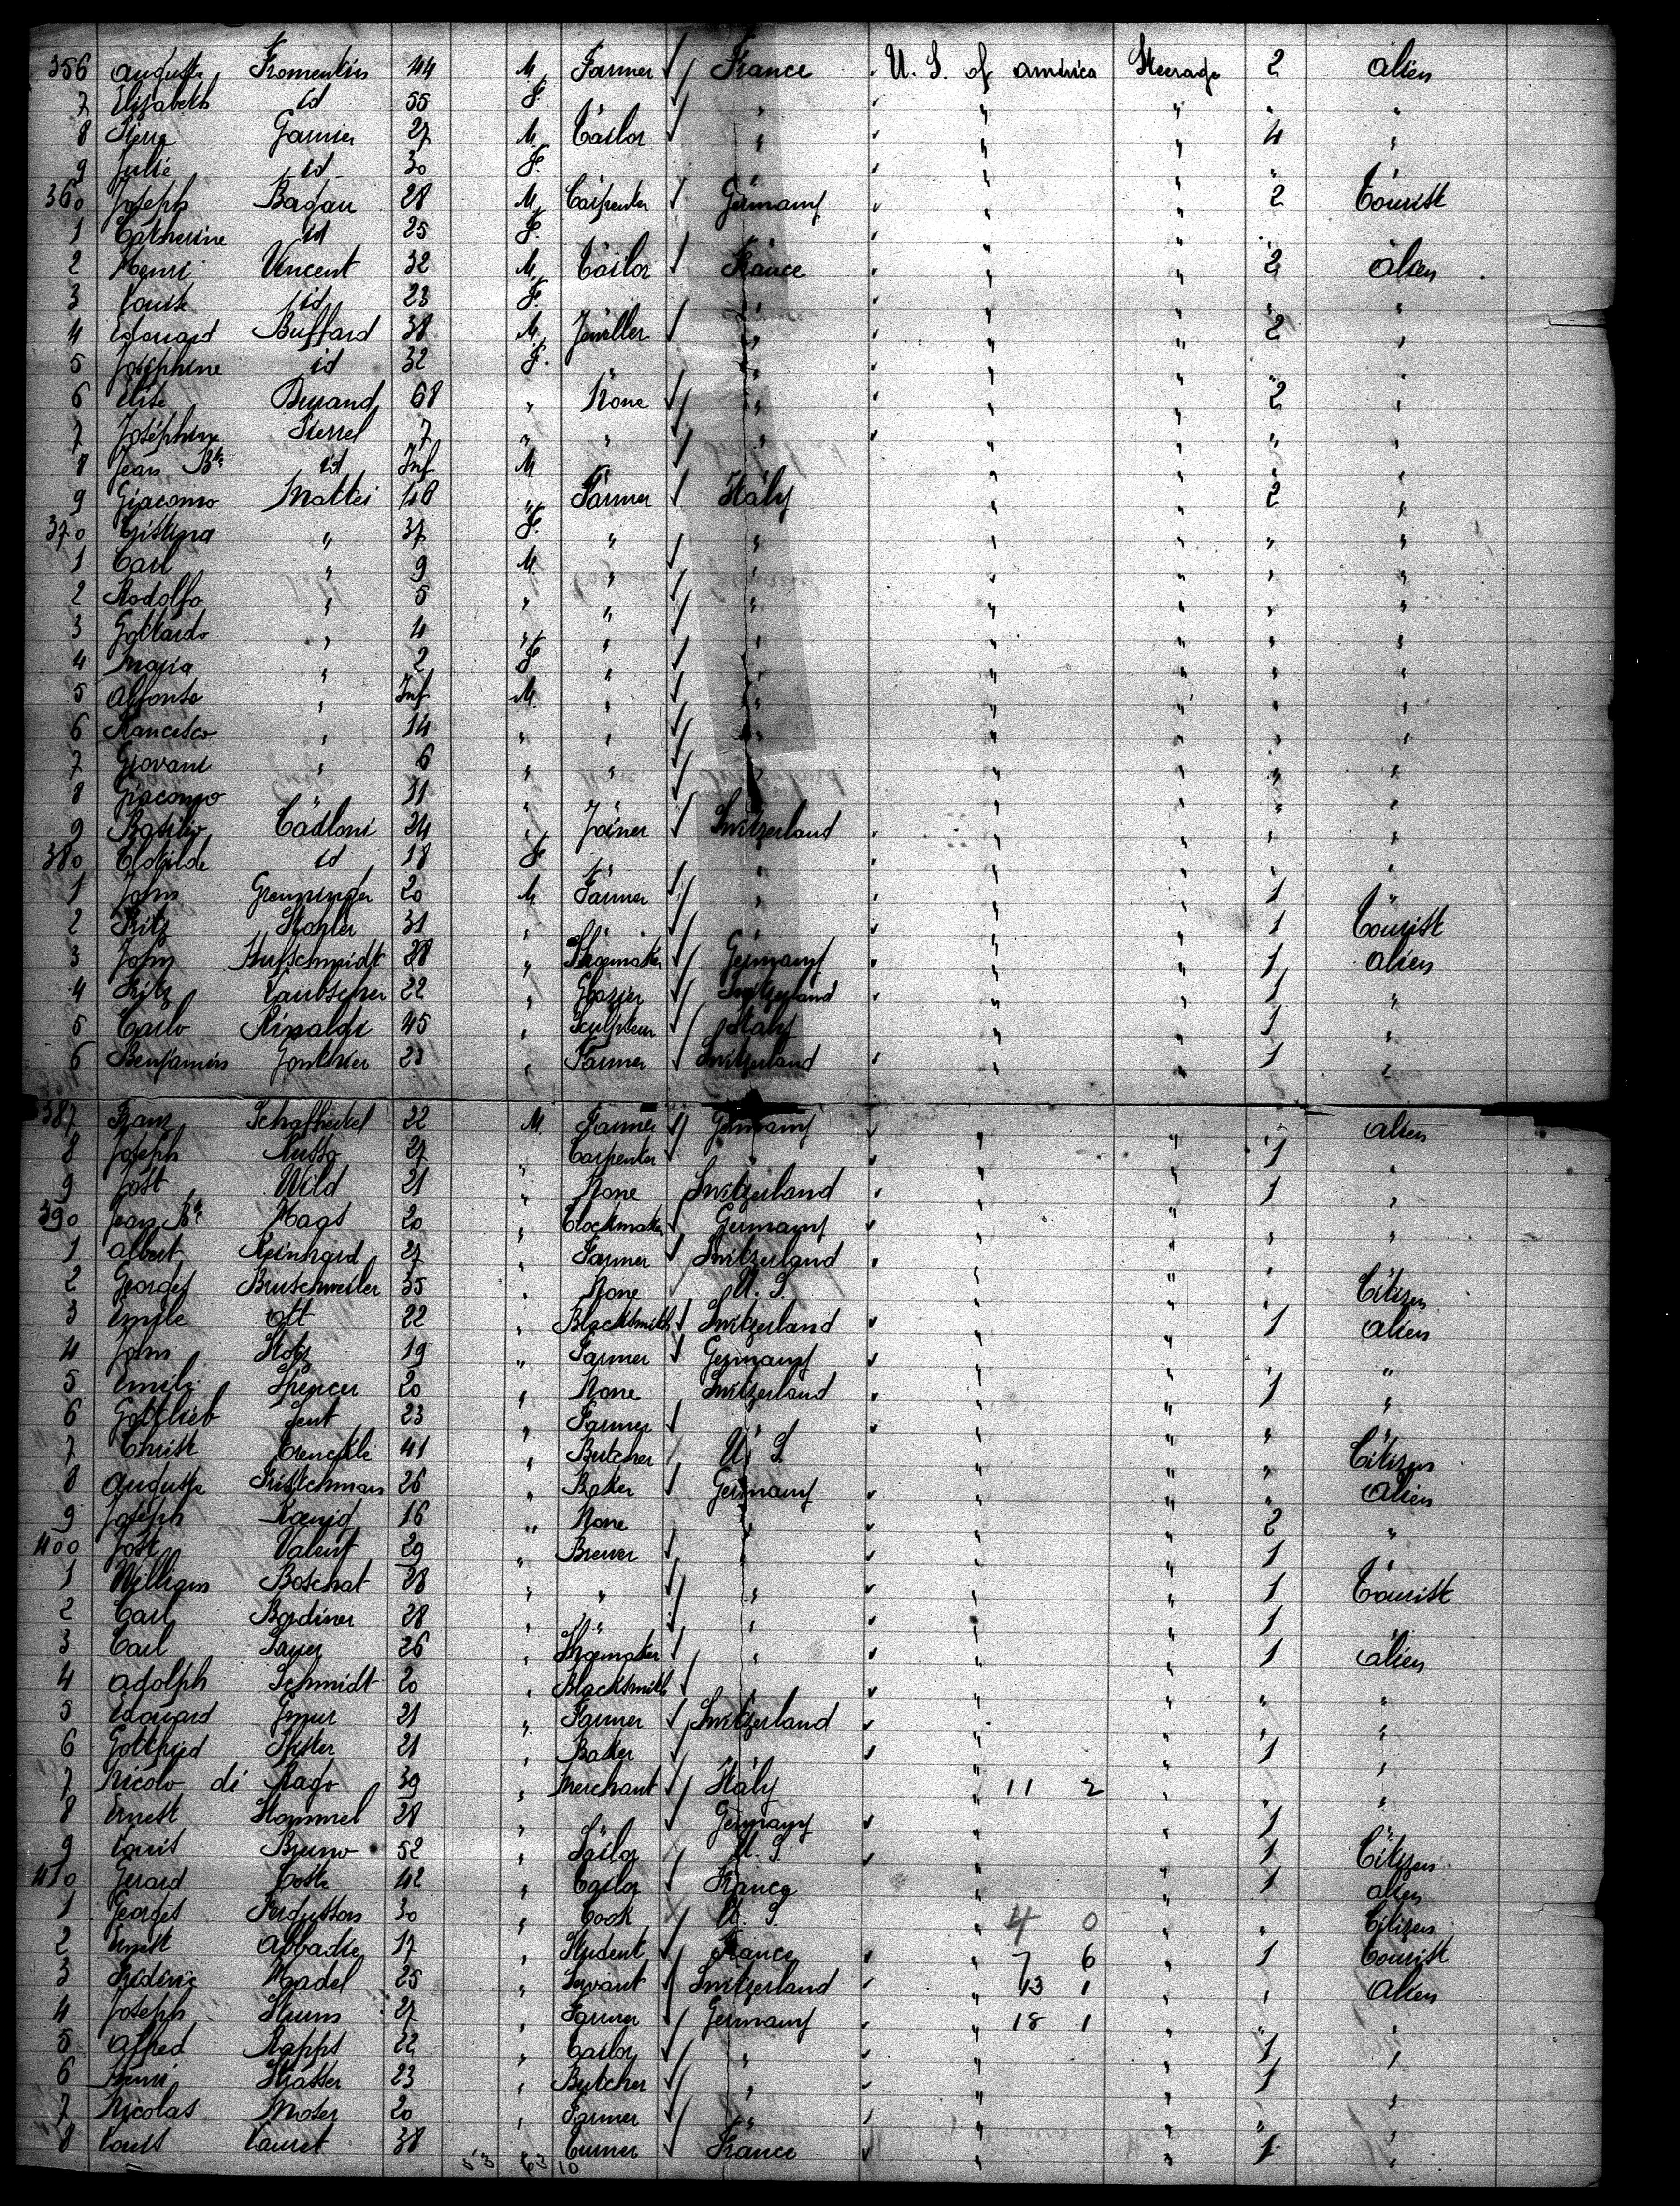 356 Auguste Fromentin 44 M. Farmer France U. S. of America Steerage 2 Alien
7 Elisabeth id 55 F. " " " " "
8 Pierre Garnier 27 M. Tailor " " " 4 "
9 Julie id 30 F. " " " " "
360 Joseph Badau 28 M. Carpenter Germany " " 2 Tourist
1 Catherine id 25 F. " "
2 Henri Vincent 32 M. Tailor France " " 2 Alien
3 Louise id 23 F. " " " " "
4 Edouard Buffard 38 M. Jeweller " " " 2 "
5 Joséphine id 32 F. " " " " "
6 Elise Durand 68 " None " " " 2 "
7 Joséphine Pierrel 7 " " " " " " "
8 Jean Bte id Inf M " " " "
9 Giacomo Mattei 48 " Farmer Italy " " 2 "
370 Cristina " 37 F. " " " " " "
1 Carl " 9 M. " " " " "
2 Rodolfo " 5 " " " " " " "
3 Gottardo " 4 " " " " " " "
4 Maria " 2 F " " " " " "
5 Alfonso " Inf M. " " " " " "
6 Francesco " 14 " " " " " " "
7 Giovani " 6 " " " " " " "
8 Giacomo 11 " " " " "
9 Basilio Cadloni 24 " Joiner Switzerland " " " "
380 Clotilde id 18 F. " " " " " "
1 John Greuninger 20 M Farmer " " " 1 "
2 Fritz Kohler 31 " " " " 1 Tourist
3 John Hufschmidt 28 " Shoemaker Germany " " 1 Alien
4 Fritz Laubscher 22 " Glazier Switzerland " " 1 "
5 Carlo Rinaldi 45 " Sculpteur Italy " " 1 "
6 Benjamin Jonthier 23 " Farmer Switzerland " " 1 "
387 Franz Schafheitel 22 M. Farmer Germany " " " Alien
8 Joseph Russo 27 " Carpenter " " 1 "
9 Jost Wild 21 " None Switzerland " " 1 "
390 Jean Bte Haas 20 " Clockmaker Germany " " " "
1 Albert Reinhard 27 " Farmer Switzerland " " "
2 Georges Bruschweiler 35 " None U. S. " " " Citizen
3 Emile Ott 22 " Blacksmith Switzerland " " 1 Alien
4 John Stotz 19 " Farmer Germany " " " "
5 Emile Spencer 20 " None Switzerland " " 1 "
6 Gottlieb Sent 23 " Farmer " " " " "
7 Christ 41 " Butcher U. S. " " " Citizen
8 Auguste 26 " Baker Germany " " " Alien
9 Joseph Kœnig 16 " None " " " 2 "
400 Jost Valent 29 " Brewer " " " 1
1 William Boschat 28 " " " " " 1 Tourist
2 Carl Bordiner 28 " " " " " 1 "
3 Carl Sayer 26 " Shoemaker " " " 1 Alien
4 Adolph Schmidt 20 " Blacksmith " " " " "
5 Edouard Gmur 21 " Farmer Switzerland " " " "
6 Gottfried Pfister 21 " Baker " " " 1 "
7 Nicolo di Mago 39 " Merchant Italy " 11 2 " " "
8 Ernest Hommel 28 " Germany " " 1 "
9 Louis Bruno 52 " Sailor U. S. " " 1 Citizen
410 Gerard Coste 42 " Tailor France " " 1 Alien
1 Georges Fergusson 30 " Cook U. S. " 4 0 " " Citizen
2 Ernest Abbadie 17 " Student France " 7 6 " 1 Tourist
3 Frédéric Hadel 25 " Servant Switzerland " 43 1 " " Alien
4 Joseph Sturm 27 " Farmer Germany " 18 1 " " "
5 Alfred Rapps 22 " Tailor " " " 1 "
6 Henri Strasser 23 " Butcher " " " 1 "
7 Nicolas Moser 20 " Farmer " " " " "
8 Louis Lauret 38 " Turner France " " 1 "
53 63 10